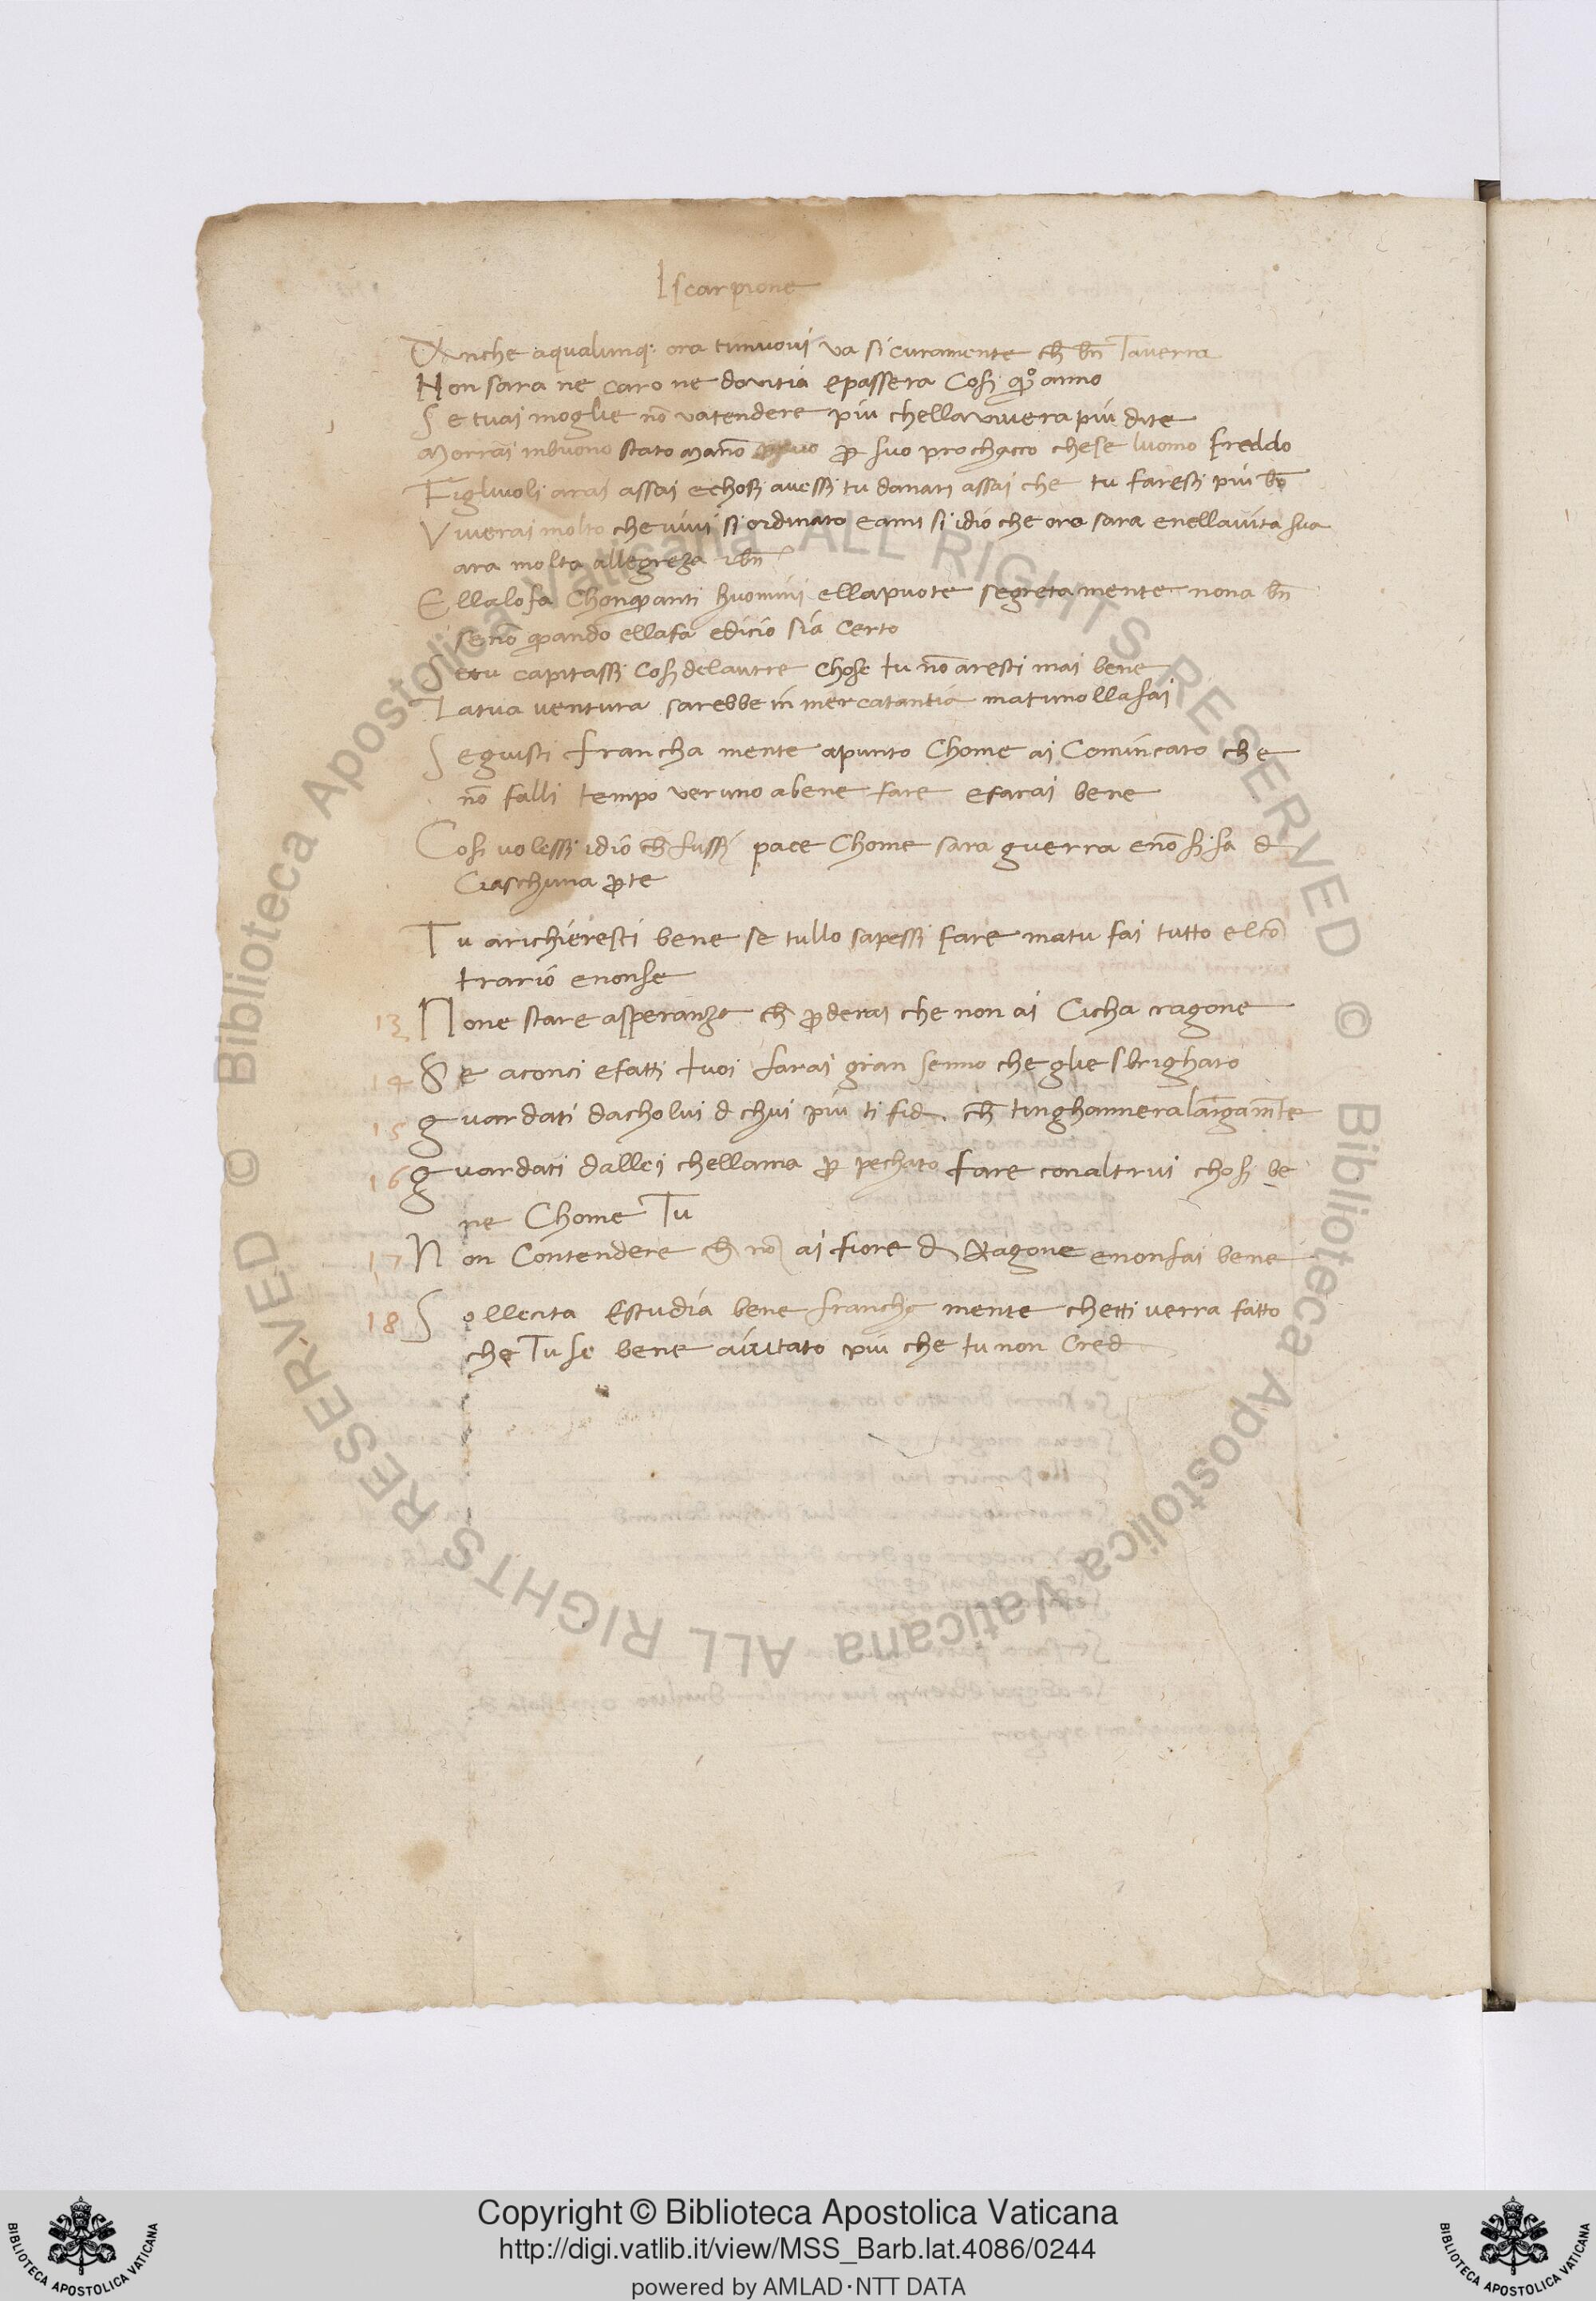 Iscarpione
Anche aqualunq; ora tu muovi va sicuramente ch bn Taverra
Non sara ne caro ne dovitia epassera Cosi qo anno
Se tuai moglie no vatendere piu chella vivera piu dite
Morrai inbuono stato Mano per suo prochacco chese luomo freddo
Figluoli arai assai echosi avessi tu danari assai che tu faresti piu bo
Viverai molto che vivi si ordinato eami si idio che ora sara enellavita sua
ara molta allegreza
Ellalofa Chonquanti huomini ellapuote segretamente nona bn
seno quando ellafa edicio sia Certo
Setu capitassi Cosi delautre Chose tu no aresti mai bene
Latua ventura sarebbe in mercatantia matunollafai
Seguisti francha mente apunto Chome ai Comincato che
no falli tempo veruno abene fare efarai bene
Cosi volessi idio ch fussi pace Chome sara guerra eno si fa d
Ciaschuna pte
Tu arichiresti bene se tullo sapessi fare matu fai tutto elco
trario enonse
13 None stare asperanza ch pderai che non ai Cicha ragone
14 Se aconci efatti tuoi farai gran senno che glie sbrighato
15 guardati dacholui d chui piu ti fid ch tinghannera largamte
16 guardati dallei chellama p pechato fare conaltrui chosi be
ne Chome Tu
17 Non Contendere ch no ai fiore d Ragone enonfai bene
18 Sollecita Estudia bene francha mente chetti verra fatto
che Tu se bene aiutato piu che tu non Cred
© Biblioteca Apostolica Vaticana ALL RIGHTS RESERVED © Biblioteca Apostolica Vaticana ALL RIGHTS RESERVED
BIBLIOTECA APOSTOLICA VATICANA
Copyright © Biblioteca Apostolica Vaticana
http://digi.vatlib.it/view/MSS_Barb.lat.4086/0244
powered by AMLAD·NTT DATA
BIBLIOTECA APOSTOLICA VATICANA